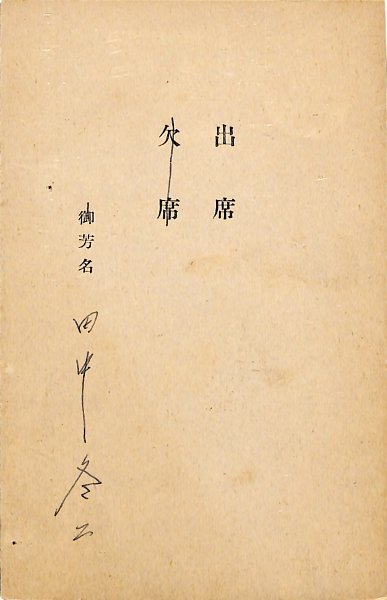 出席
欠席
御芳名 田中冬二